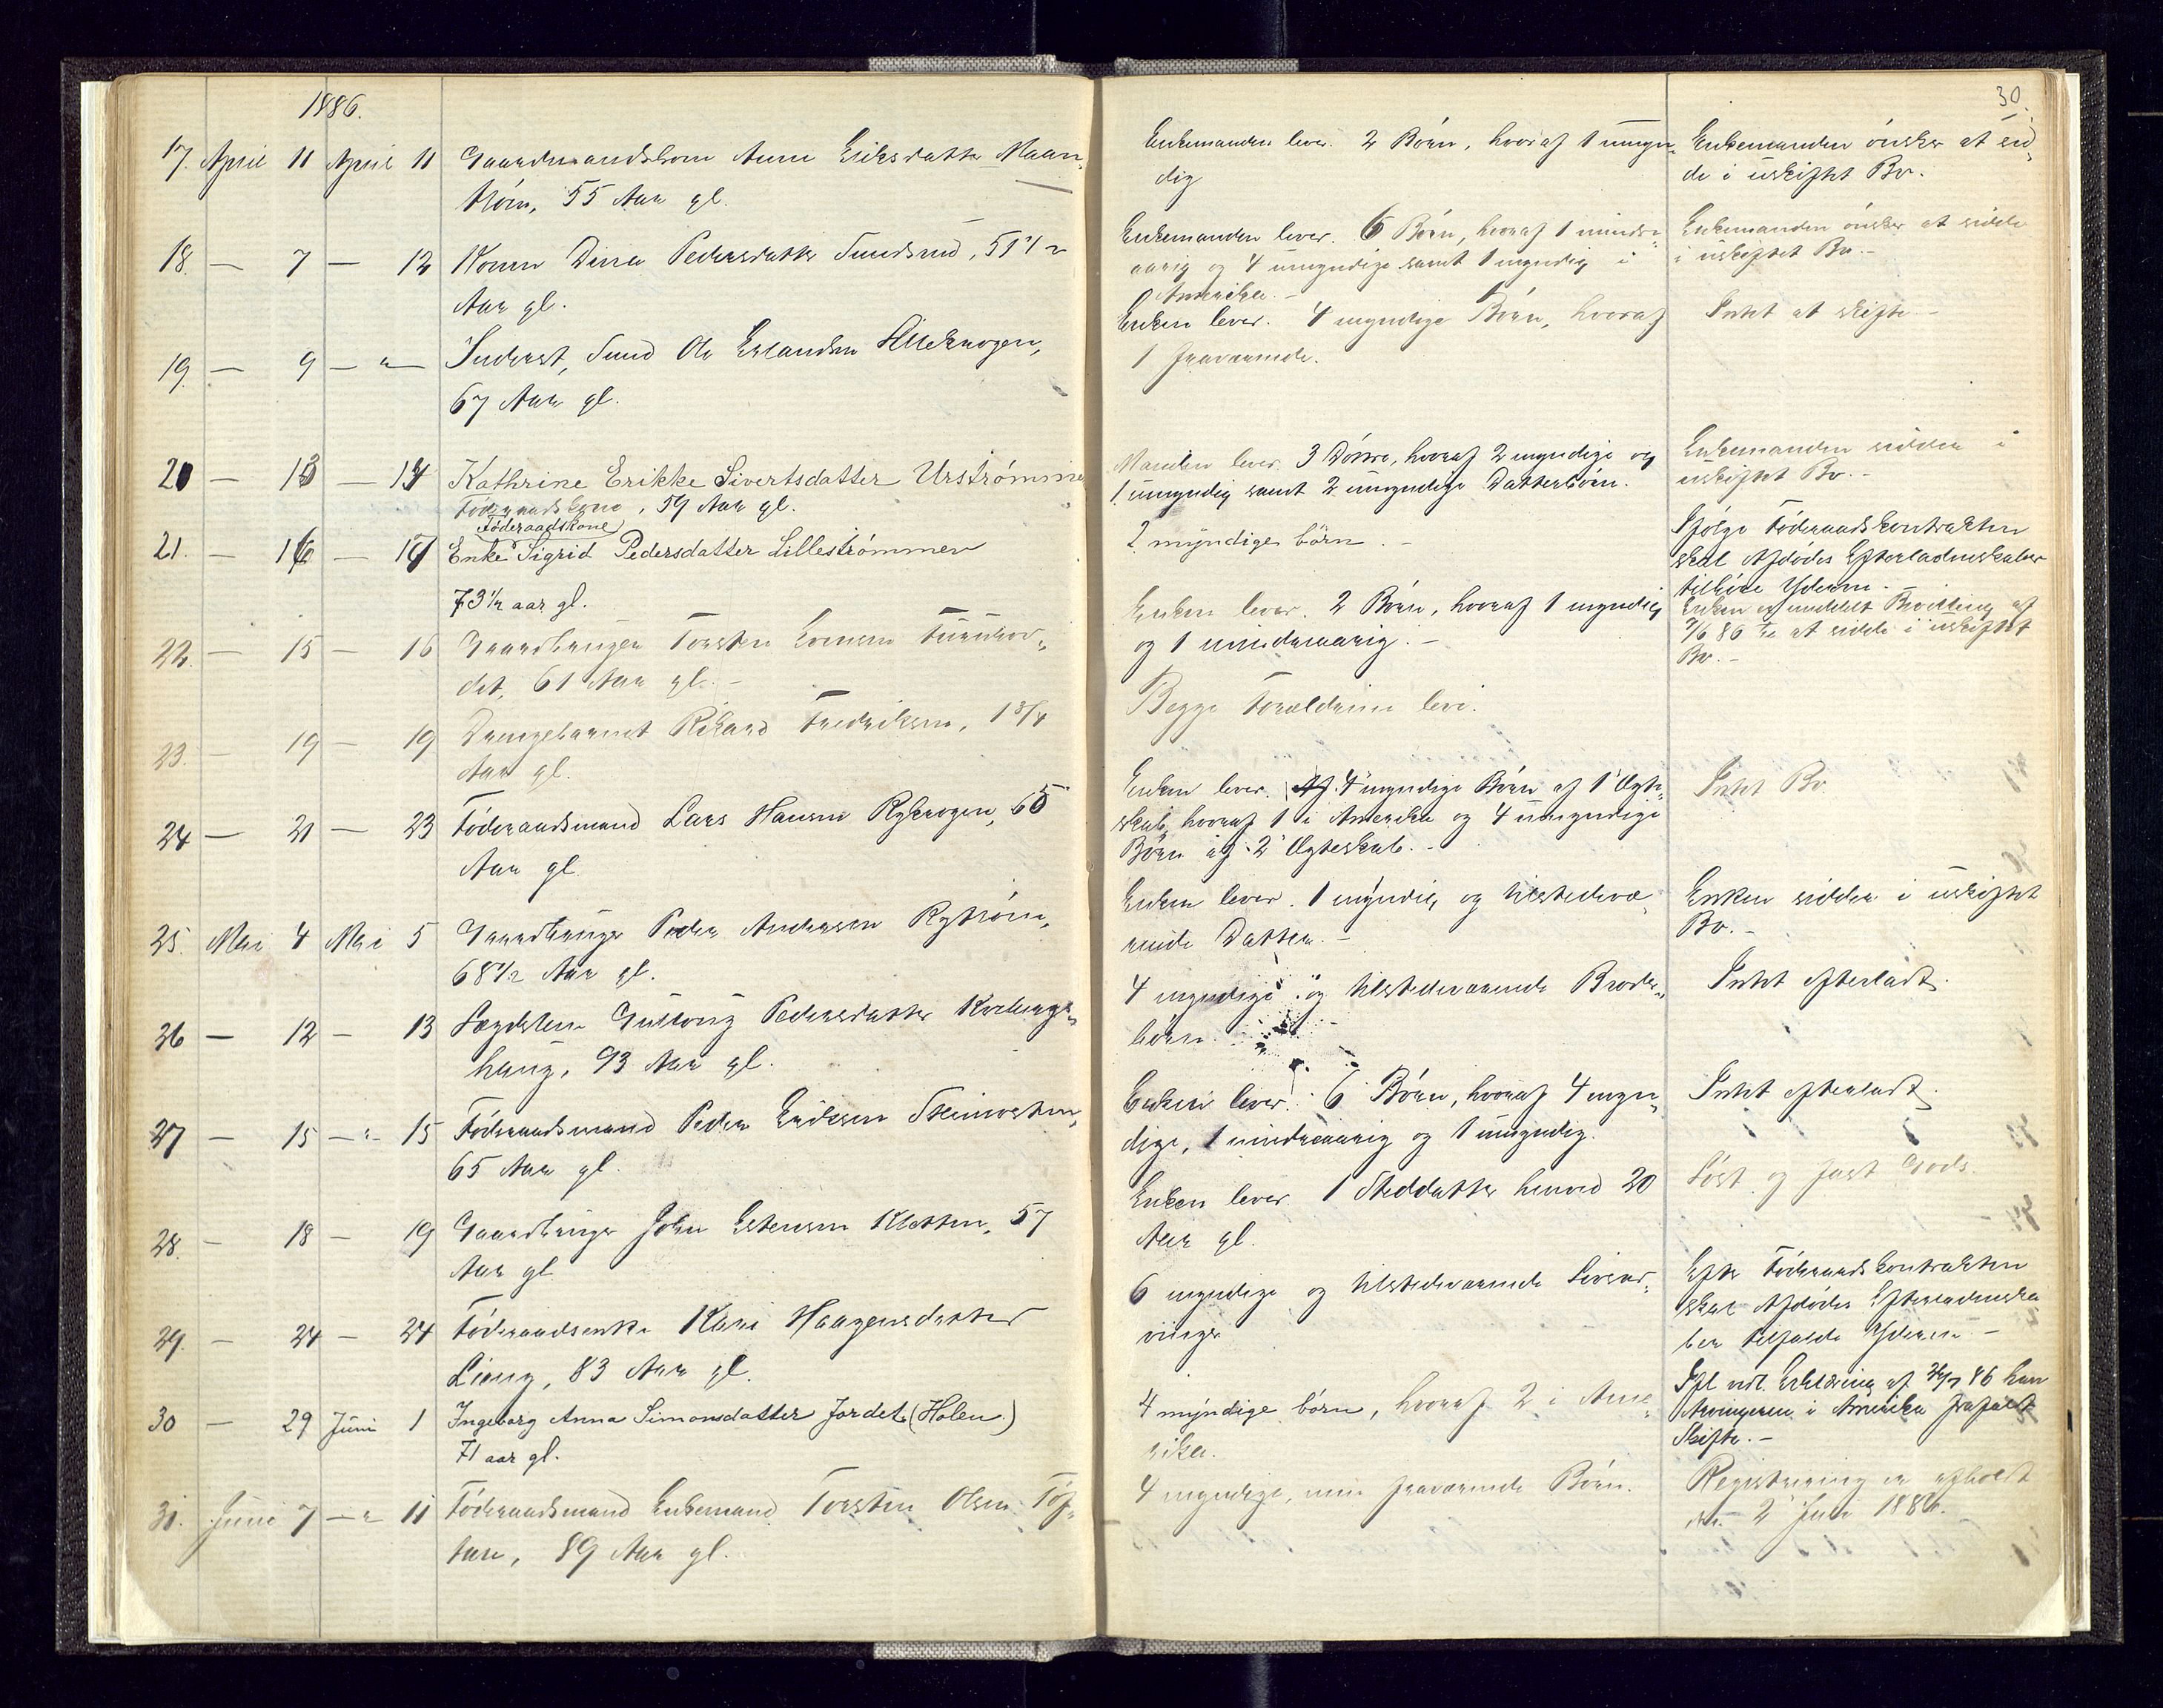 1886.
30.
17. April 11 April 11 Gaardmandskone Anne Eriksdatter Maan-
strøm, 55 Aar gl.
Enkemanden lever. 2 Børn, hvoraf 1 umyn-
dig
Enkemanden ønsker at sid-
de i uskiftet Bo.
18. — 7 — 12 Konen Dina Pedersdatter Sundmo, 51 1/2
Aar gl.
Enkemanden lever. 6 Børn, hvoraf 1 mindre-
aarig og 4 umyndige samt 1 myndig i
Amerika. —
Enkemanden ønsker at sidde
i uskiftet Bo. —
19. — 9 — " — Inderst, Smed Ole Erlandsen
67 Aar gl.
Enken lever. 4 myndige Børn, hvoraf
1 fraværende.
Intet at skifte —
20 — 13 — 14 Kathrine Erikke Sivertsdatter Urstrømmen
Føderaadskone, 59 Aar gl.
Manden lever. 3 Døtre, hvoraf 2 myndige og
1 umyndig samt 2 umyndige Datterbørn.
Enkemanden sidder i
uskiftet Bo. —
21. — 16 — 17 Føderaadskone
Enke Sigrid Pedersdatter Lillestrømmen
73 1/2 aar gl.
2 myndige børn. —
Ifølge Føderaadskontrakten
skal Afdødes Efterladenskaber
tilhøre Yderen. —
22. — 15 — 16 Gaardbruger Torsten
det, 61 Aar gl. —
Enken lever. 2 Børn, hvoraf 1 myndig
og 1 mindreaarig. —
Enken er meddelt Bevilling af
7/6 86 til at sidde i uskiftet
Bo. —
23. — 19 — 19 Drengebarnet Rikard Fredriksen, 1 3/4
Aar gl.
Begge Forældrene leve.
24 — 21 — 23 Føderaadsmand Lars Hansen Rykrogen, 65
Aar gl.
Enken lever. 4 myndige Børn af 1' Ægte-
skab, hvoraf 1 i Amerika og 4 umyndige
Børn af 2' Ægteskab. —
Intet Bo.
25. Mai 4 Mai 5 Gaardbruger Peder Andersen Rystrøm,
68 1/2 Aar gl.
Enken lever. 1 myndig og tilstedevæ-
rende Datter. —
Enken sidder i uskiftet
Bo. —
26 — 12 — 13 Lægdslem Guttorg Pedersdatter
haug, 93 Aar gl.
4 myndige og tilstedeværende Broder-
børn.
Intet efterladt.
27 — 15 — " — 15 Føderaadsmand Peder Eriksen
65 Aar gl.
Enken lever. 6 Børn, hvoraf 4 myn-
dige, 1 mindreaarig og 1 umyndig.
Intet efterladt.
28. — 18 — 19 Gaardbruger John Estensen Kletten, 57
Aar gl.
Enken lever. 1 Steddatter henved 20
Aar gl.
Løst og fast Gods
29. — 24 — 24 Føderaadsenke Kari Haagensdatter
Lieng, 83 Aar gl.
6 myndige og tilstedeværende Livsar-
vinger
Efter Føderaadskontrakten
skal Afdødes Efterladenska
ber tilfalde Yderen —
30 — 29 Juni 1 Ingeborg Anna Simonsdatter Jordet (Holen)
71 aar gl.
4 myndige børn, hvoraf 2 i Ame-
rika.
Ifl. vedl. Erklæring af 86 har
Arvingerne i Amerika frafaldt
Skifte. —
31. Juni 7 — " — 11 Føderaadsmand Enkemand Torsten Olsen Tøf-
ten, 89 Aar gl.
4 myndige, men fraværende Børn.
Registrering er afholdt
den 2' Juli 1886.